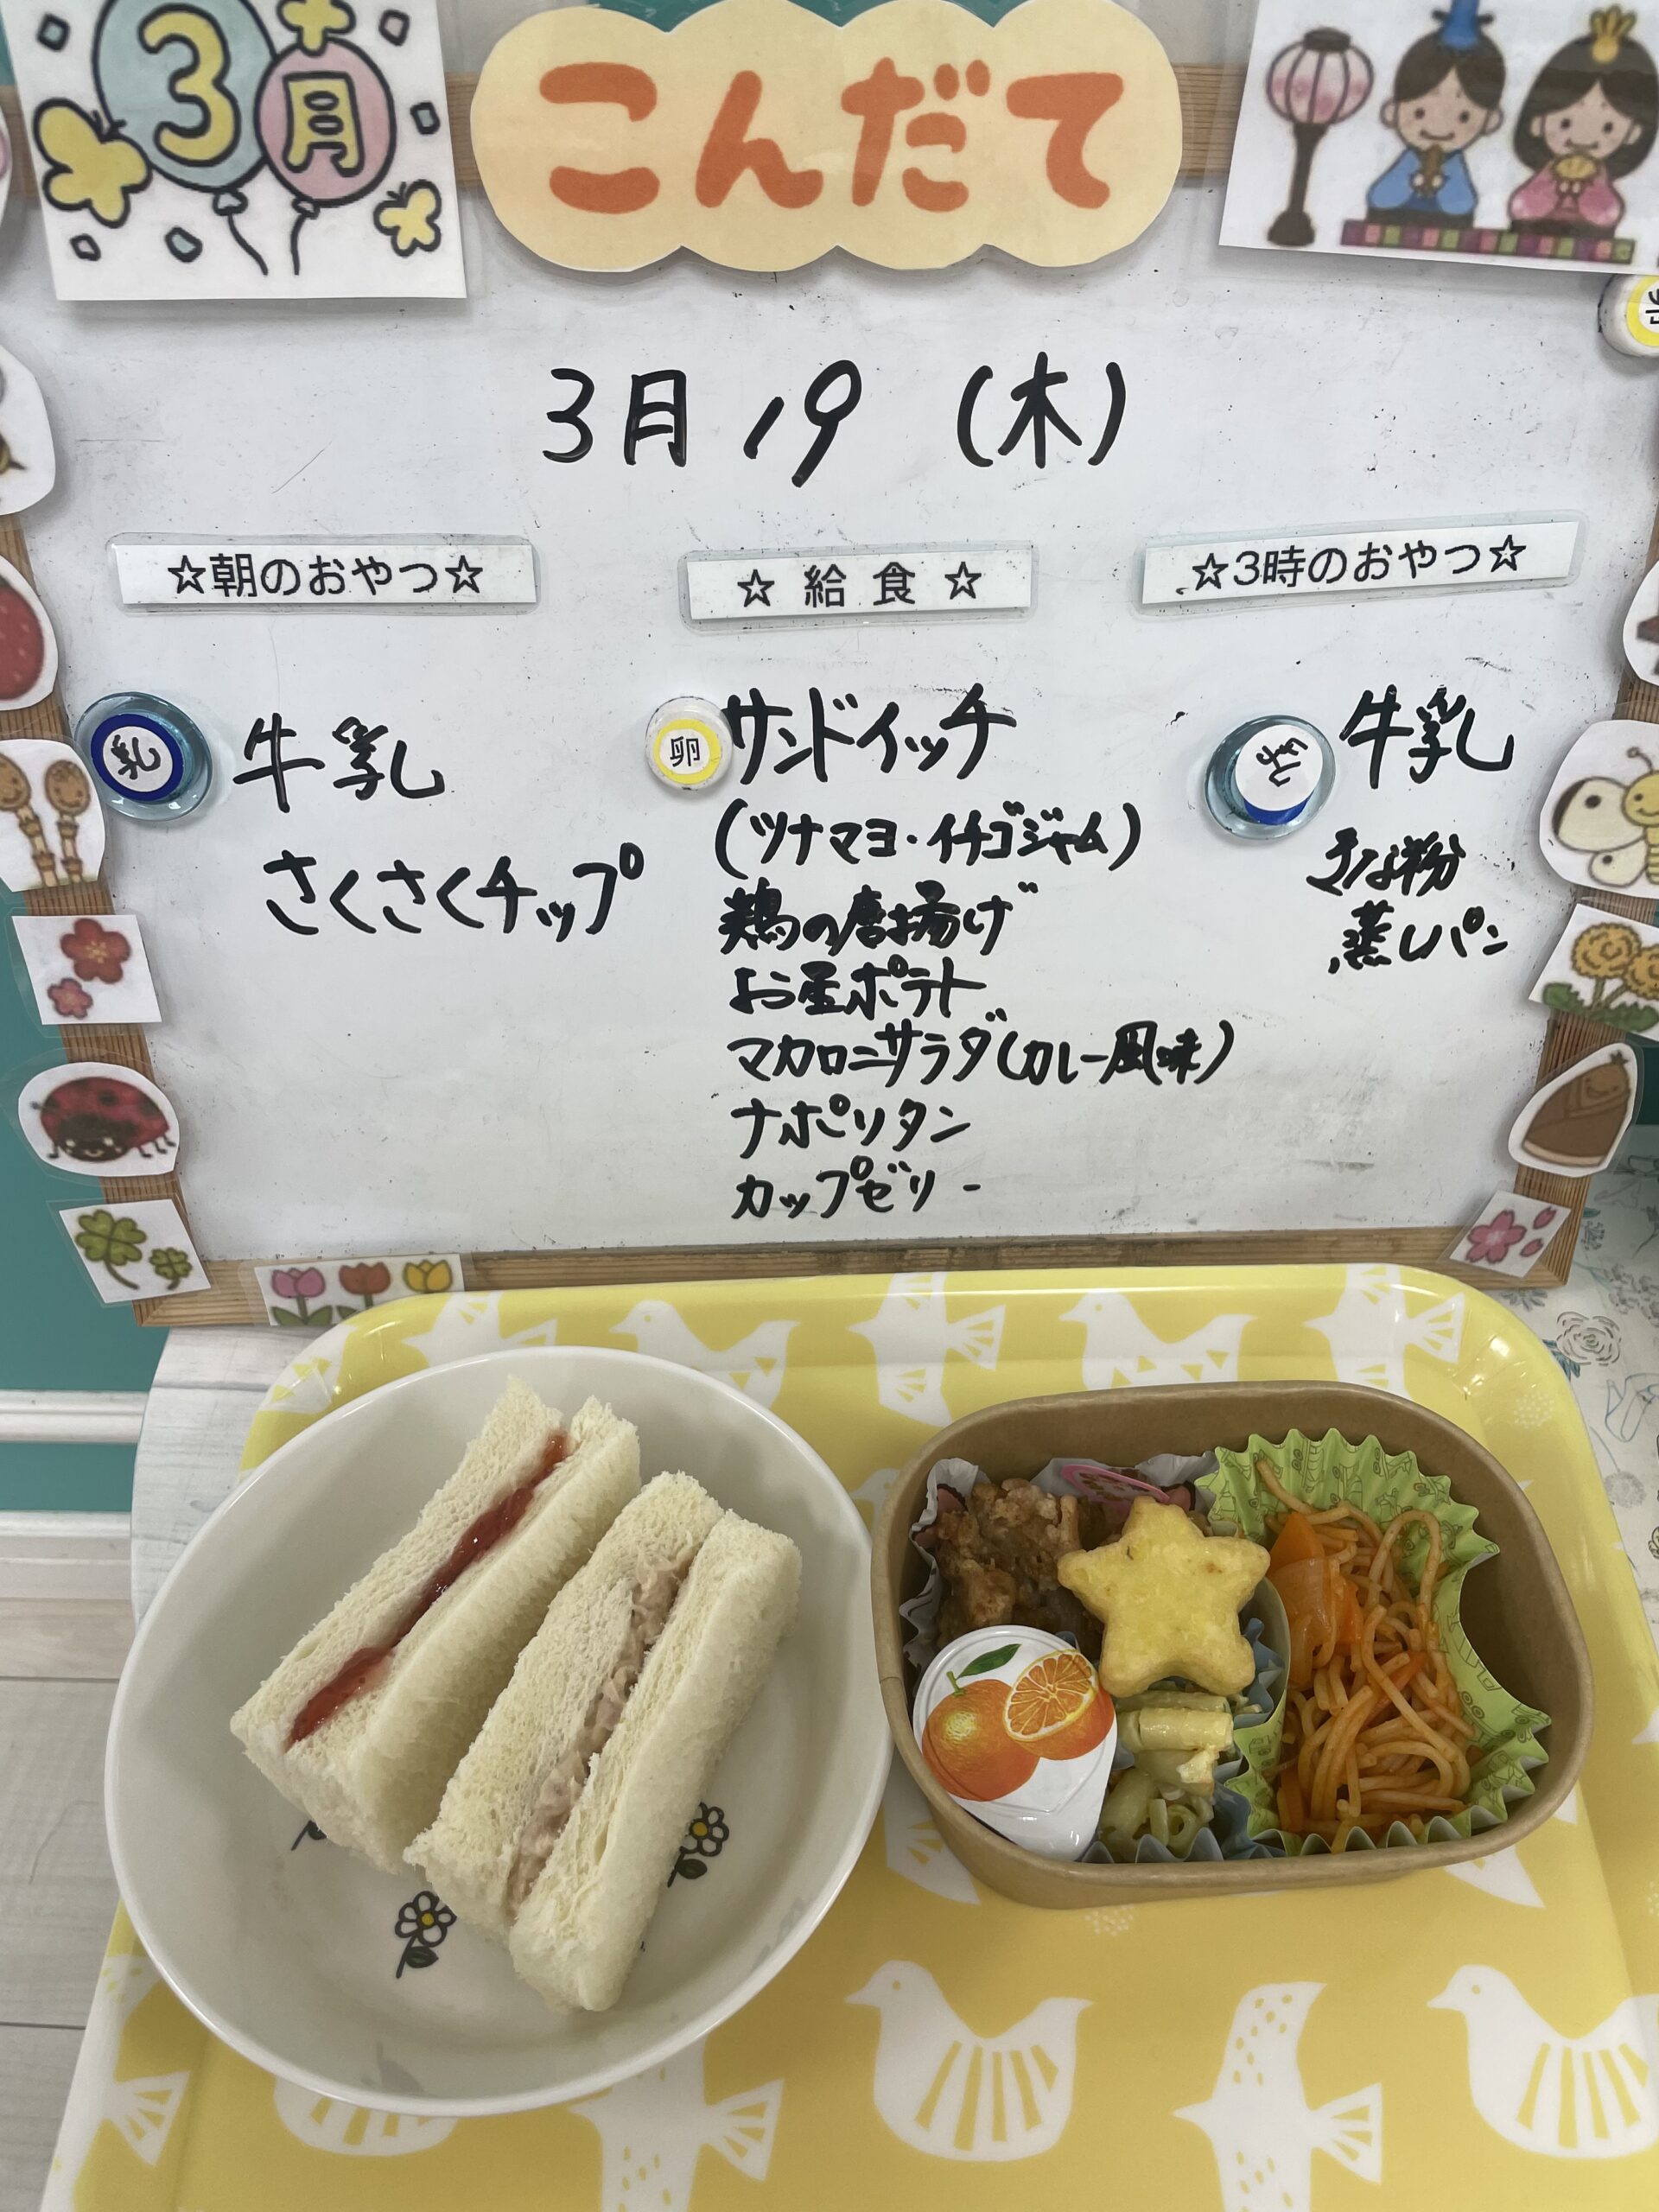 3月
こんだて
3月19(木)
☆朝のおやつ☆
☆給食☆
☆3時のおやつ☆
乳
牛乳
さくさくチップ
卵
サンドイッチ
(ツナマヨ・イチゴジャム)
鶏の唐揚げ
お星ポテト
マカロニサラダ(カレー風味)
ナポリタン
カップゼリー
乳
牛乳
きな粉
蒸しパン